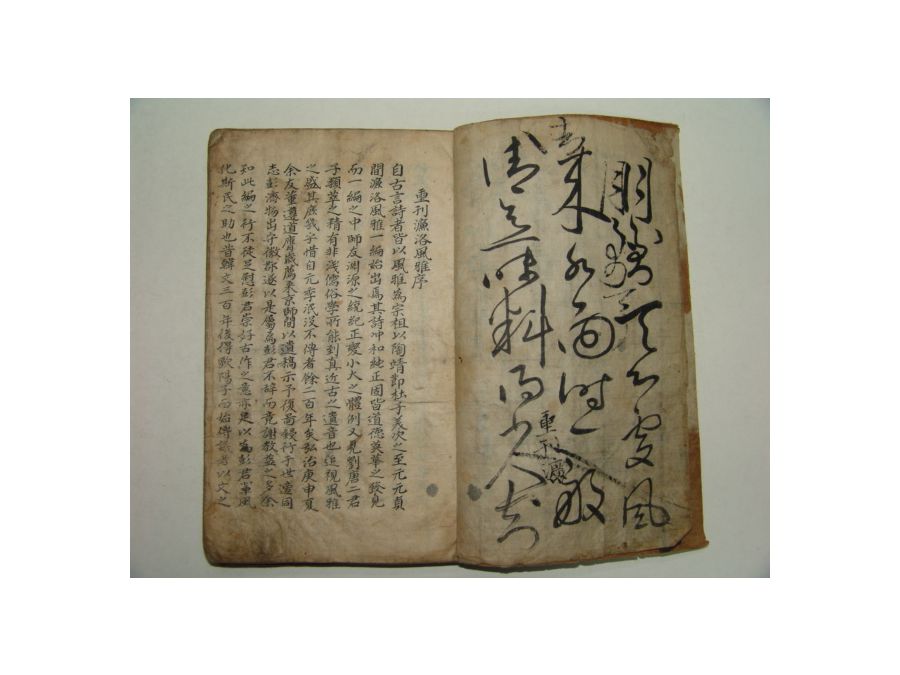 月到天心處風
來水面時一般
清意味料得少人知
重刊濂
重刊濂洛風雅序
自古言詩者皆以風雅為宗祖以陶靖節杜子美次之至元元貞
間濂洛風雅一編始出焉其詩冲和純正固皆道德英華之發見
而一編之中師友淵源之統紀正變小大之體例又見劉唐二君
子類萃之精有非淺儒俗學所能到真近古之遺音也追視風雅
之盛其庶幾乎惜自元季泯沒不傳者餘二百年矣弘治庚申夏
余友董遵道膺歲薦來京師間以遺稿示予復啚鋟行于世適同
志彭濟物出守徽郡遂以是屬焉彭君不辞而竟謝教益之多余
知此編之行不徒足慰彭君崇好古作之意亦足以為彭君軰風
化斯民之助也昔韓文三百年後得歐陽子而始傳議者以文之